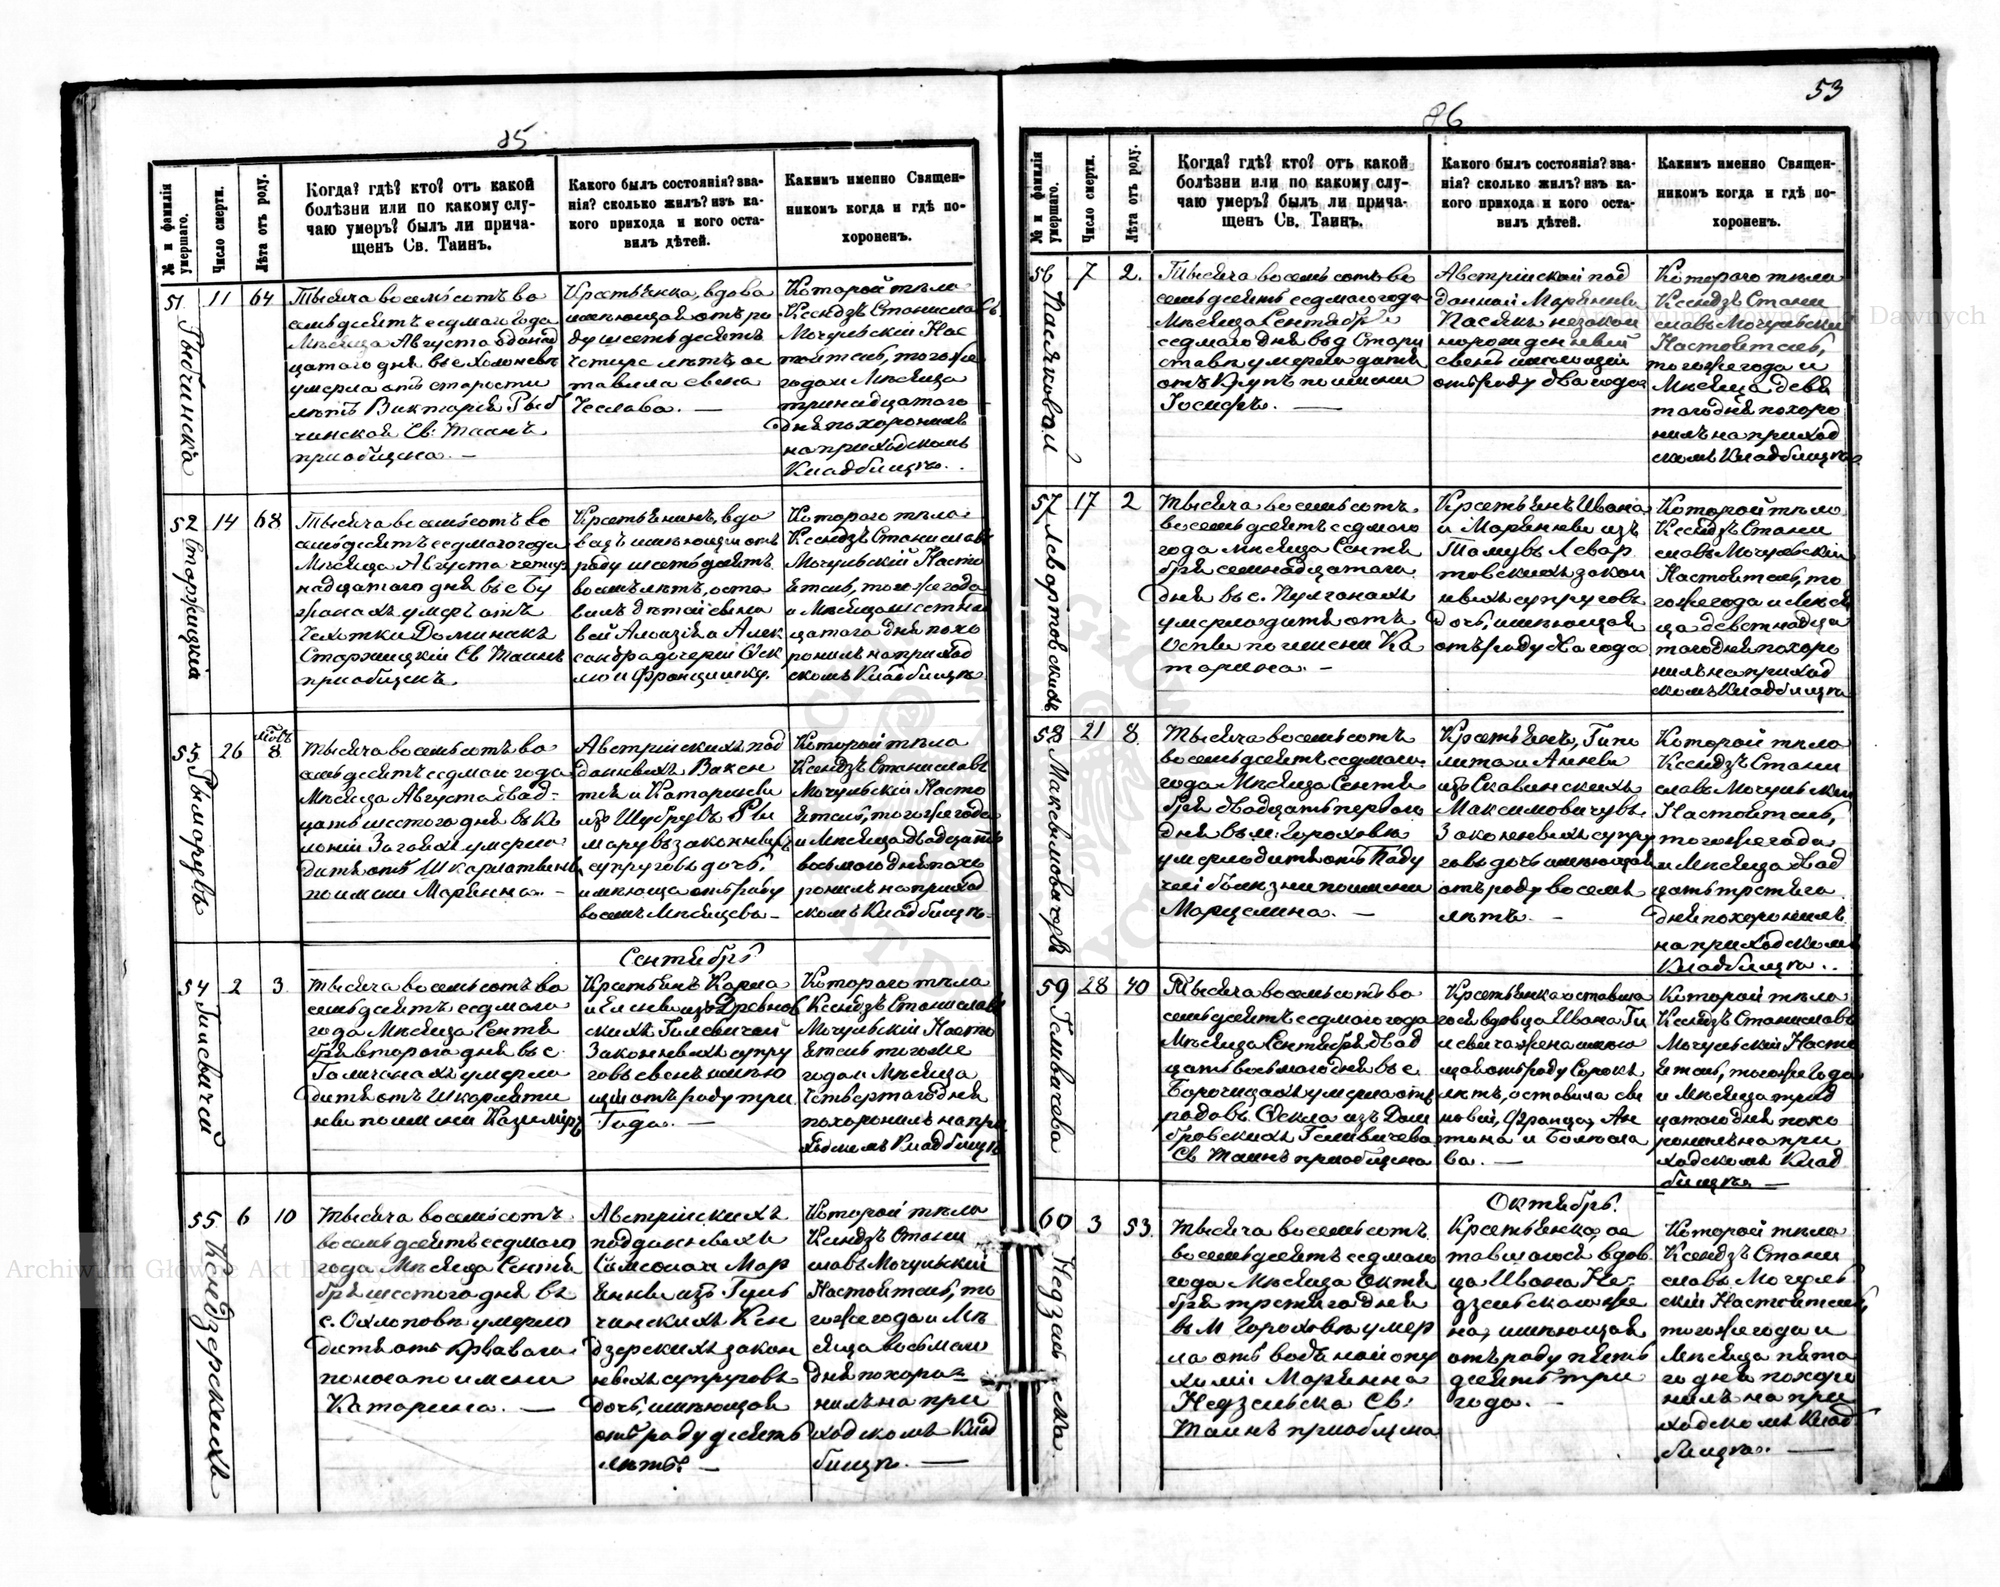 53
85
№ и фамилія умершаго.
Число смерти.
Лѣта отъ роду.
Когда? гдѣ? кто? отъ какой
болѣзни или по какому слу-
чаю умеръ? былъ ли прича-
щенъ Св. Таинъ.
Какого былъ состоянія? зва-
нія? сколько жилъ? изъ ка-
кого прихода и кого оста-
вилъ дѣтей.
Какимъ именно Священ-
никомъ когда и гдѣ по-
хороненъ.
51.
Рыбчинска
11
64
Тысяча восемьсотъ во
семьдесятъ седмаго года
Мѣсяца Августа одинад
цатаго дня
умерла отъ старости
лѣтъ Викторія Рыб
чинская Св. Таинъ
приобщена. —
Крестьянка, вдова
имѣющая отъ ро
ду шестьдесятъ
четыре лѣтъ, ос
тавила сына
Чеслава. —
Которой тѣло
Ксендзъ Станиславъ
Мочульскій Нас
тоятель, того же
года и Мѣсяца
тринадцатого
дня похоронилъ
на приходскомъ
Кладбищѣ.
52
Сторжицкій
14
68
Тысяча восемьсотъ во
семьдесятъ седмаго года
Мѣсяца Августа четыр
надцатаго дня въ с Бу
жанахъ умеръ отъ
Чехотки Доминикъ
Старжицкій Св Таинъ
приобщенъ.
Крестьянинъ, вдо
вецъ имѣющій отъ
роду шестьдесятъ
восемь лѣтъ, оста
вилъ дѣтей сына
вей Алоизія и Алек
сандра дочерей Фек
лю и Францишку.
Которого тѣло
Ксендзъ Станиславъ
Мочульскій Насто
ятель, того же года
и Мѣсяца шестнад
цатаго дня похо
ронилъ на приход
скомъ Кладбищѣ.
53.
Рымаруъ
26
8
Тысяча восемьсотъ во
семьдесятъ седмаго года
Мѣсяца Августа двад-
цать шестого дня въ Ко
лоніи Загаяхъ умерло
дитя отъ Шкарлатины
по имени Маріянна. —
Австрійскихъ под
данныхъ Викен
тія и Катарины
изъ Шубруъ Ры
маруъ законныхъ
супруговъ дочь,
имѣюща отъ роду
восемь Мѣсяцевъ —
Которой тѣло
Ксендзъ Станиславъ
Мочульскій Насто
ятель, того же года
и Мѣсяца двадцать
восьмого дня похо
ронилъ на приход
скомъ Кладбищѣ.
Сентябрь
54
Гилевичей
2
3
Тысяча восемьсотъ во
семьдесятъ седмаго
года Мѣсяца Сентя
бря второго дня въ с
Галичанахъ умерло
дитя отъ Шкарляти
ны по имени Казимиръ
Крестьянъ Карла
и Елены изъ
скихъ Гилевичей
Законныхъ супру
говъ сынъ имѣю
щій отъ роду три
Года. —
Которого тѣло
Ксендзъ Станиславъ
Мочульскій Насто
ятель того же
года и Мѣсяца
Четвертаго дня
похоронилъ на при
ходскомъ Кладбищѣ
55.
Кендзерскихъ
6
10
Тысяча восемьсотъ
восемьдесятъ седмаго
года Мѣсяца Сентя
бря шестого дня въ
с. Охлоповъ умерло
дитя отъ Кроваваго
поноса по имени
Катарина. —
Австрійскихъ
подданныхъ
Симеона и Мар
іянны изъ
чинскихъ Кен
дзерскихъ закон
ныхъ супруговъ
дочь, имѣющая
отъ роду десять
лѣтъ. —
Которой тѣло
Ксендзъ Стани
славъ Мочульскій
Настоятель, то
го же года и Мѣ
сяца восьмаго
дня похоро-
нилъ на при
ходскомъ Клад
бищѣ. —
86
№ и фамилія умершаго.
Число смерти.
Лѣта отъ роду.
Когда? гдѣ? кто? отъ какой
болѣзни или по какому слу-
чаю умеръ? былъ ли прича-
щенъ Св. Таинъ.
Какого былъ состоянія? зва-
нія? сколько жилъ? изъ ка-
кого прихода и кого оста-
вилъ дѣтей.
Какимъ именно Священ-
никомъ когда и гдѣ по-
хороненъ.
56
7
2.
Тысяча восемьсотъ во
семьдесятъ седмаго года
Мѣсяца Сентября
седмаго дня
умерло дитя
отъ Крупъ по имени
Іосифъ. —
Австрійской под
данной Маріянны
Пасякъ незакон
норожденный
сынъ имѣющій
отъ роду два года
Которого тѣло
Ксендзъ Стани
славъ Мочульскій
Настоятель,
того же года и
Мѣсяца девя
таго дня похоро
нилъ на приход
скомъ Кладбищѣ
57
Левартовскихъ
17
2
Тысяча восемьсотъ
восемьдесятъ седмаго
года Мѣсяца Сентя
бря семнадцатаго
дня въ с. Пулганахъ
умерло дитя отъ
Оспы по имени Ка
тарина. —
Крестьянъ Ивана
и Маріянны изъ
Левар
товскихъ закон
ныхъ супруговъ
дочь, имѣющая
отъ роду два года
Которой тѣло
Ксендзъ Стани
славъ Мочульскій
Настоятель, то
го же года и Мѣся
ца девятнадца
таго дня похоро
нилъ на приход
скомъ Кладбищѣ
58
Максымовичувъ
21
8.
Тысяча восемьсотъ
восемьдесятъ седмаго
года Мѣсяца Сентя
бря двадцать перваго
дня въ м. Гороховѣ
умерло дитя отъ Паду
чей болѣзни по имени
Марцелина. —
Крестьянъ, Гипо
лита и Анны
изъ Скавинскихъ
Максимовичувъ
Законныхъ супру
говъ дочь имѣющая
отъ роду восемь
лѣтъ. —
Которой тѣло
Ксендзъ Стани
славъ Мочульскій
Настоятель,
того же года
и Мѣсяца двад
цать третьяго
дня похоронилъ
на приходскомъ
Кладбищѣ.
59
Гилевичева
28
40
Тысяча восемьсотъ во
семьдесятъ седмаго года
Мѣсяца Сентября двад
цать восьмого дня въ с
умерла отъ
родовъ Фекла изъ Дом
бровскихъ Гилевичева
Св Таинъ приобщена
Крестьянка оставша
гося вдовца Ивана Ги
левича жена имѣю
щая отъ роду Сорокъ
лѣтъ, оставила сы
новей, Франца, Ан
тона и Болесла
ва. —
Которой тѣло
Ксендзъ Станиславъ
Мочульскій Насто
ятель, того же года
и Мѣсяца трид
цатаго дня похо
ронилъ на при
ходскомъ Клад
бищѣ —
Октябрь.
60
Недзельска
3
53.
Тысяча восемьсотъ
восемьдесятъ седмаго
года Мѣсяца Октя
бря третьяго дня
въ М Гороховѣ умер
ла отъ водяной опу
холи Маріянна
Недзельска Св.
Таинъ приобщена
Крестьянка, ос
тавшагося вдов
ца Ивана Не-
дзельскаго же
на, имѣющая
отъ роду пять
десятъ три
года. —
Которой тѣло
Ксендзъ Стани
славъ Мочуль
скій Настоятель,
того же года и
Мѣсяца пята
го дня похоро
нилъ на при
ходскомъ Клад
бищѣ. —
Archiwum Główne Akt Dawnych
Archiwum Główne Akt Dawnych